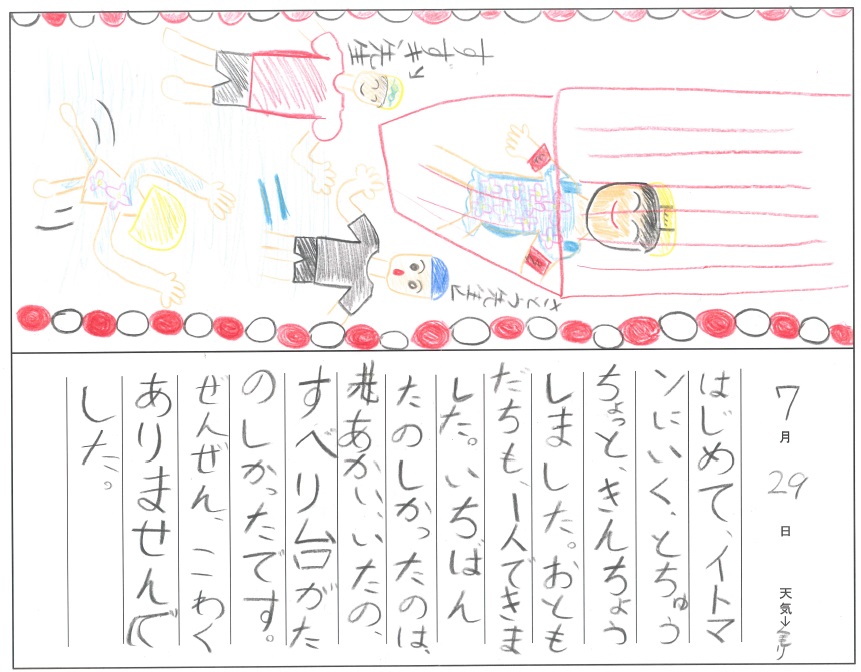 すずき先生
さとう先生
7月29日 天気↓
はじめて、イトマ
ンにいく、とちゅう
ちょっと、きんちょう
しました。おとも
だちも、1人できま
した。いちばん
たのしかったのは、
あかい、いたの、
すべり台がた
のしかったです。
ぜんぜん、こわく
ありませんで
した。